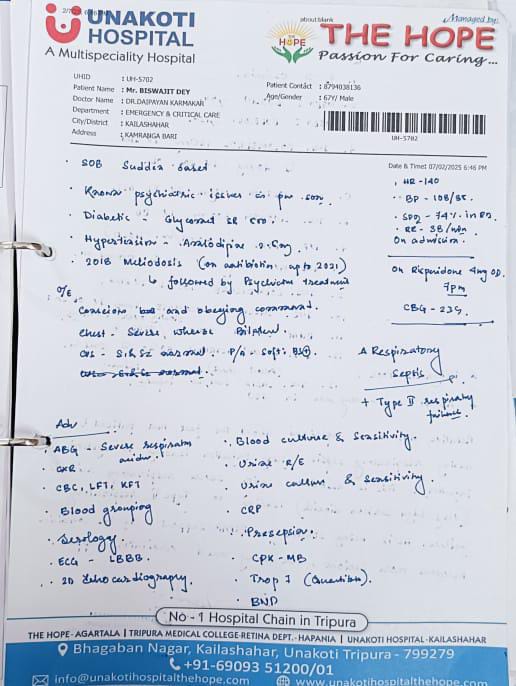 about:blank
UNAKOTI
HOSPITAL
A Multispeciality Hospital
Managed by:
THE HOPE
THE HOPE
Passion For Caring...
UHID : UH-5702
Patient Name : Mr. BISWAJIT DEY
Doctor Name : DR.DAIPAYAN KARMAKAR
Department : EMERGENCY & CRITICAL CARE
City/District : KAILASHAHAR
Address : KAMRANGA BARI
Patient Contact : 8794038136
Age/Gender : 67Y/ Male
UH-5702
Date & Time: 07/02/2025 6:46 PM
· SOB Sudden onset
· Known psychiatric issues as per son.
· Diabetic - Glycomet SR
· Hypertension - Amlodipine
· 2018 Meliodosis (on antibiotin upto 2021)
↳ followed by Psychiatric treatment
O/E
Conscious and obeying command.
Chest - Severe wheeze Bilateral.
CVS - S1 & S2 normal. P/A - Soft; BS⊕.
HR - 140
BP - 108/85
SPO2 - 74% in RA
RR - 38/min
On admission.
On Risperidone 4mg OD.
7pm
CBG - 235.
Δ Respiratory
Sepsis
+ Type II respiratory
failure.
Adv
· ABG - Severe respiratory
· CXR
· CBC, LFT, KFT
· Blood grouping
· Serology
· ECG - LBBB.
· 2D Echocardiography.
· Blood culture & Sensitivity.
· Urine R/E
· Urine culture & Sensitivity.
· CRP
· CPK-MB
· Trop I (Quantitative).
· BNP
No - 1 Hospital Chain in Tripura
THE HOPE- AGARTALA | TRIPURA MEDICAL COLLEGE-RETINA DEPT.- HAPANIA | UNAKOTI HOSPITAL-KAILSHAHAR
Bhagaban Nagar, Kailashahar, Unakoti Tripura - 799279
+91-69093 51200/01
info@unakotihospitalthehope.com www.unakotihospitalthehope.com